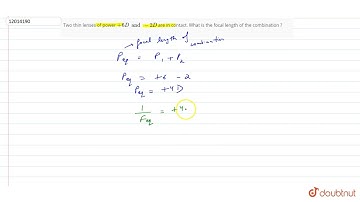 12014190
Two thin lenses of power +6D and −2D are in contact. What is the focal length of the combination ?
→ focal length of combination
Peq = P1 + P2
Peq = +6 − 2
Peq = +4D
1/Feq = +4
doubtnut